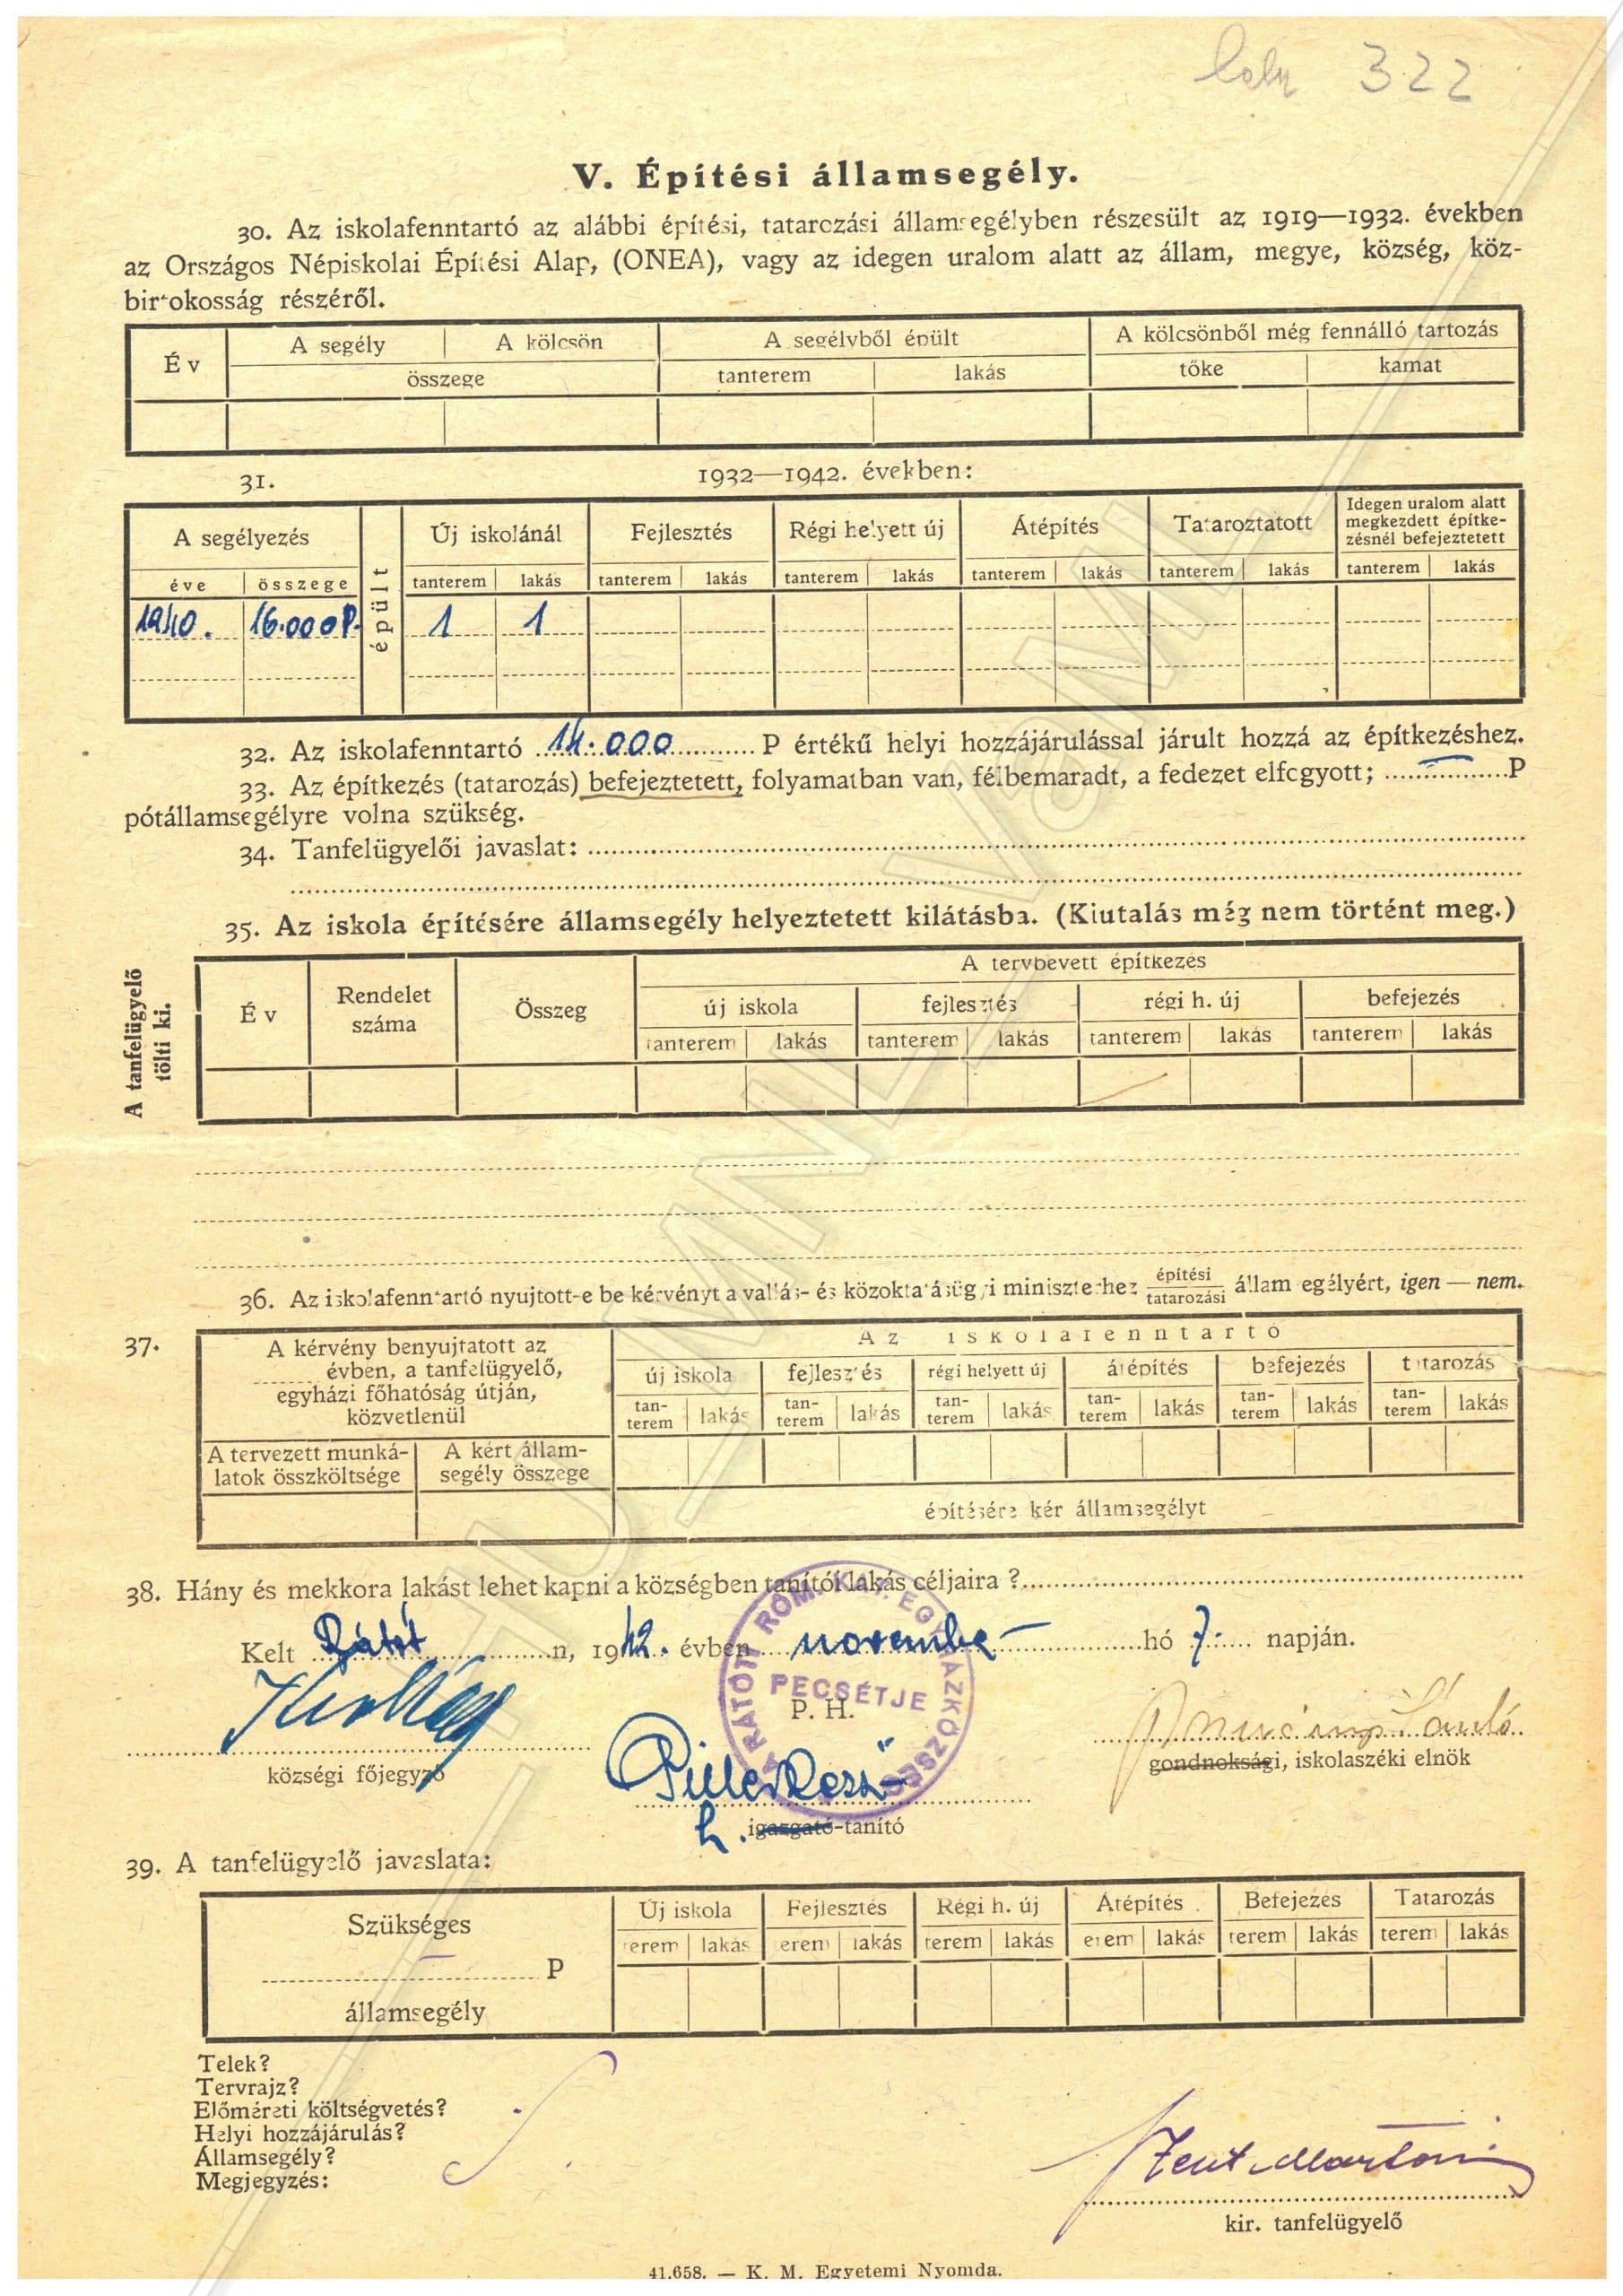 322
V. Építési államsegély.
30. Az iskolafenntartó az alábbi építési, tatarozási államsegélyben részesült az 1919—1932. években
az Országos Népiskolai Építési Alap, (ONEA), vagy az idegen uralom alatt az állam, megye, község, köz-
birtokosság részéről.
Év A segély A kölcsön A segélyből épült A kölcsönből még fennálló tartozás
összege tanterem lakás tőke kamat
31. 1932—1942. években:
A segélyezés épült Új iskolánál Fejlesztés Régi helyett új Átépítés Tataroztatott Idegen uralom alatt
megkezdett építke-
zésnél befejeztetett
éve összege tanterem lakás tanterem lakás tanterem lakás tanterem lakás tanterem lakás tanterem lakás
1940. 16.000 P. 1 1
32. Az iskolafenntartó 14.000 P értékű helyi hozzájárulással járult hozzá az építkezéshez.
33. Az építkezés (tatarozás) befejeztetett, folyamatban van, félbemaradt, a fedezet elfogyott; — P
pótállamsegélyre volna szükség.
34. Tanfelügyelői javaslat:
35. Az iskola építésére államsegély helyeztetett kilátásba. (Kiutalás még nem történt meg.)
A tanfelügyelő
tölti ki.
Év Rendelet
száma Összeg A tervbevett építkezés
új iskola fejlesztés régi h. új befejezés
tanterem lakás tanterem lakás tanterem lakás tanterem lakás
36. Az iskolafenntartó nyujtott-e be kérvényt a vallás- és közoktatásügyi miniszterhez építési
tatarozási államsegélyért, igen — nem.
37. A kérvény benyujtatott az
évben, a tanfelügyelő,
egyházi főhatóság útján,
közvetlenül
Az iskolafenntartó
új iskola fejlesztés régi helyett új átépítés befejezés tatarozás
tan-
terem lakás tan-
terem lakás tan-
terem lakás tan-
terem lakás tan-
terem lakás tan-
terem lakás
A tervezett munká-
latok összköltsége A kért állam-
segély összege
építésére kér államsegélyt
38. Hány és mekkora lakást lehet kapni a községben tanítói lakás céljaira ?
Kelt Rátót n, 1942. évben november hó 7. napján.
A RÁTÓTI RÓM. KAT. EGYHÁZKÖZSÉG
PECSÉTJE
P. H.
községi főjegyző
gondnoksági, iskolaszéki elnök
Piller Dezső
h. igazgató-tanító
39. A tanfelügyelő javaslata:
Szükséges
— P
államsegély
Új iskola Fejlesztés Régi h. új Átépítés Befejezés Tatarozás
terem lakás terem lakás terem lakás terem lakás terem lakás terem lakás
Telek?
Tervrajz?
Előméreti költségvetés?
Helyi hozzájárulás?
Államsegély?
Megjegyzés:
kir. tanfelügyelő
41.658. — K. M. Egyetemi Nyomda.
HU_MNL_VaML